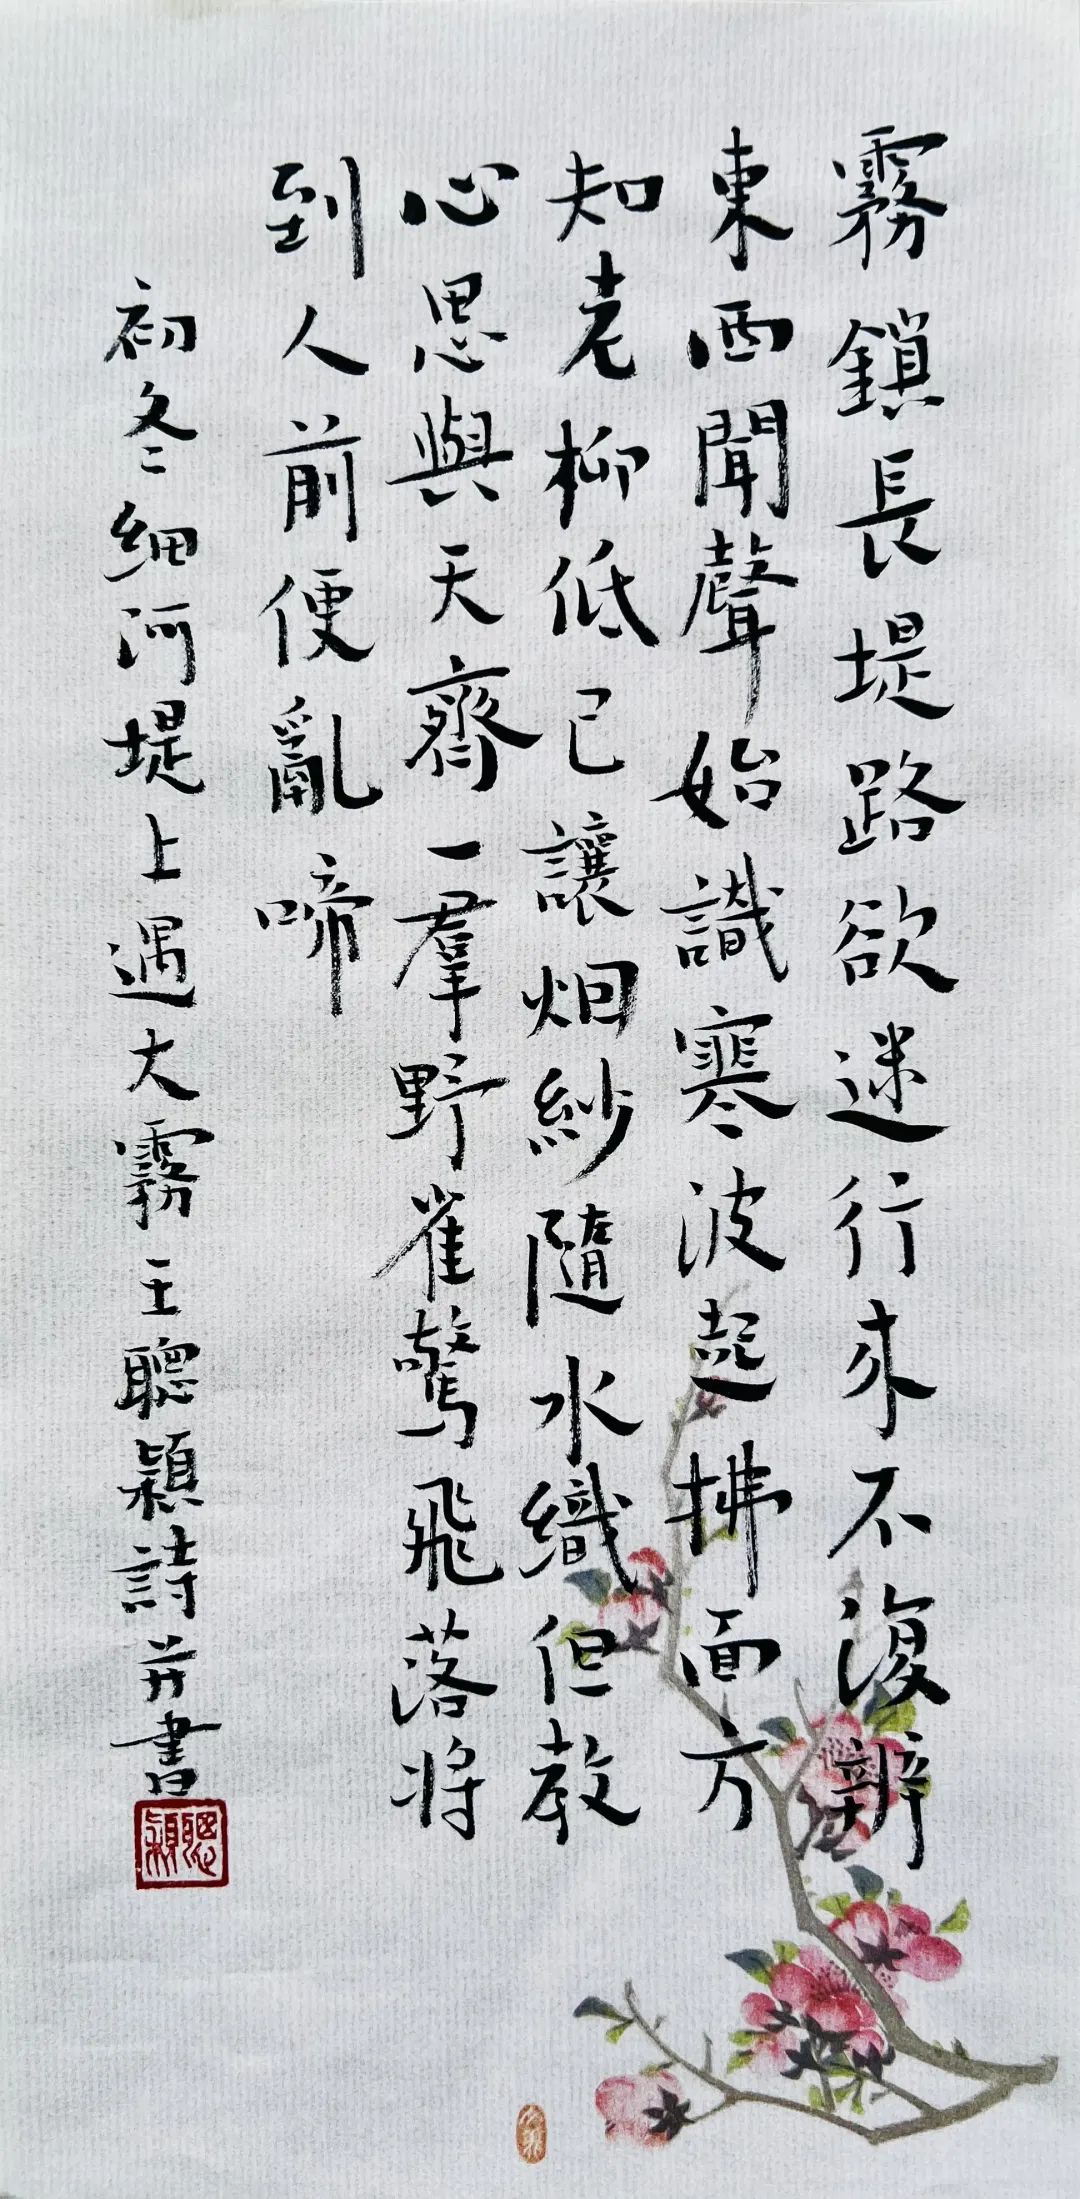 霧鎖長堤路欲迷行來不復辨
東西聞聲始識寒波起拂面方
知老柳低已讓烟紗隨水織但教
心思與天齊一羣野雀驚飛落將
到人前便亂啼
初冬细河堤上遇大霧王聰穎詩并書
聰穎